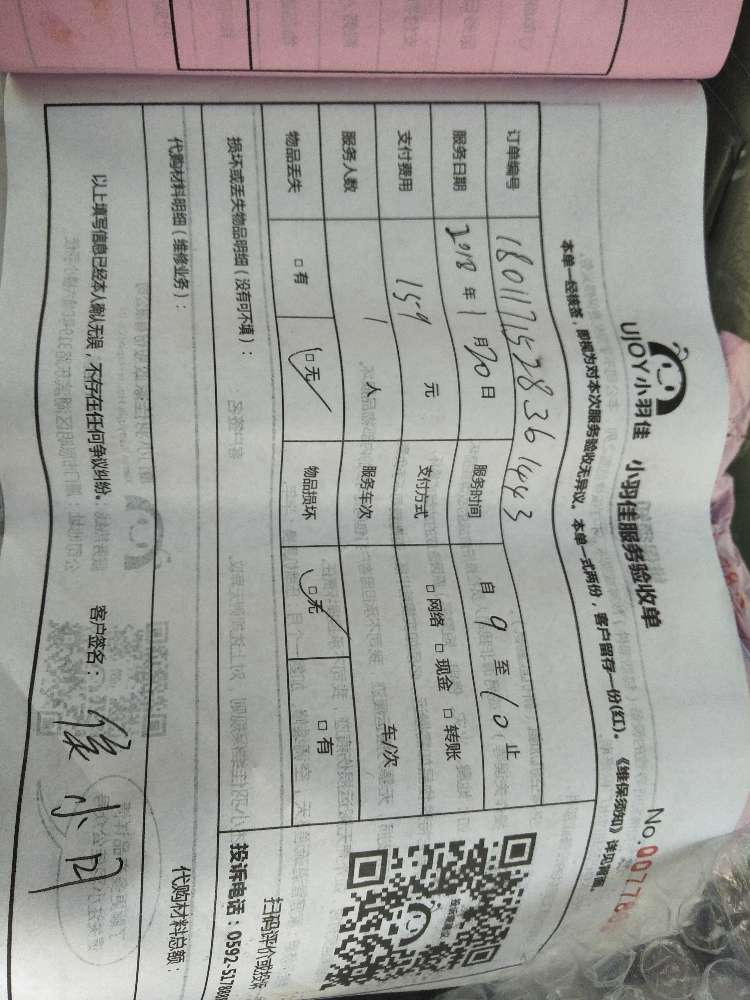 UJOY小羽佳 小羽佳服务验收单
No.
本单一经接签，即视为对本次服务验收无异议。本单一式两份，客户留存一份(红)。《维保须知》详见背面。
订单编号 1801171528361443
服务日期 2018年1月20日 服务时间 自9至10止
支付费用 159元 支付方式 □网络 □现金 □转账
服务人数 1人 服务车次 车/次
物品丢失 □有 □无 物品损坏 □无 □有
损坏或丢失物品明细（没有可不填）：
扫码评价或投诉
投诉电话：0592-51788
代购材料明细（维修业务）： 代购材料总额：
以上填写信息已经本人确认无误，不存在任何争议纠纷。 客户签名：